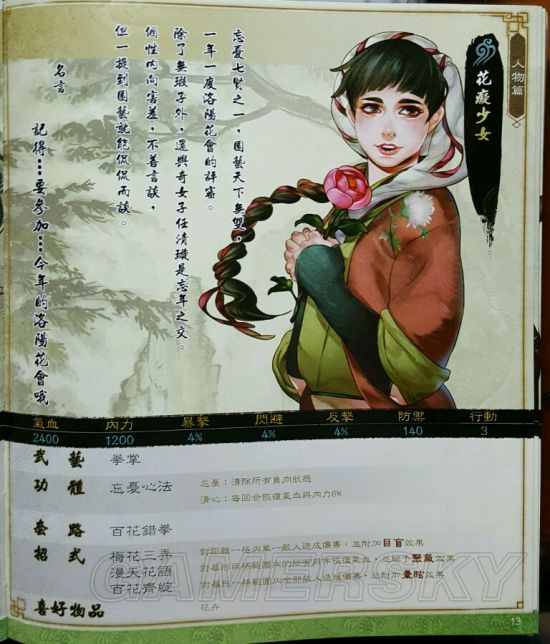 人物篇
花癡少女
忘憂七賢之一，園藝天下無雙，
一年一度洛陽花會的評審。
除了無瑕子外，還與奇女子任清璇是忘年之交。
個性內向害羞，不善言談，
但一提到園藝就能侃侃而談。
名言
記得…要參加…今年的洛陽花會哦
氣血 內力 暴擊 閃避 反擊 防禦 行動
2400 1200 4% 4% 4% 140 3
武藝 拳掌
功體 忘憂心法
忘憂：清除所有負向狀態
清心：每回合恢復氣血與內力8%
套路 百花錯拳
招式 梅花三弄 對距離一格內單一敵人造成傷害，並附加目盲效果
漫天花語 對菱形兩格範圍內的所有同伴恢復氣血，並給予聚氣效果
百花齊綻 對菱形一格範圍內全部敵人造成傷害，並附加暈眩效果
喜好物品 花卉
GAMERSKY
13